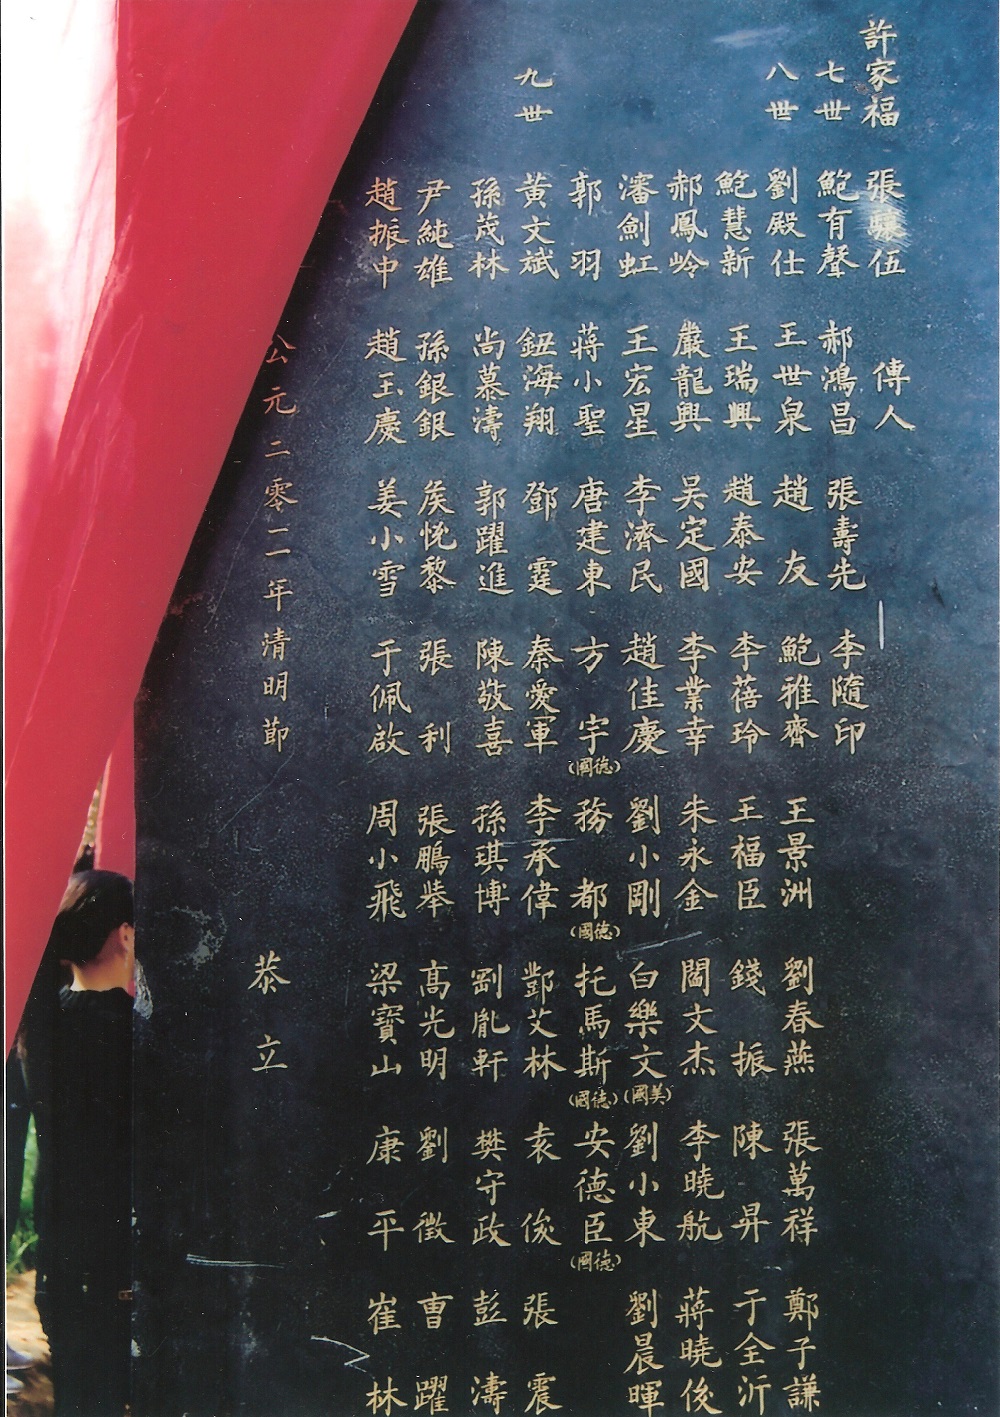 許家福 張驤伍 傳人
七世 鮑有聲 郝鴻昌 張壽先 李隨印
八世 劉殿仕 王世泉 趙友 鮑雅齊 王景洲 劉春燕 張萬祥 鄭子謙
鮑慧新 王瑞興 趙泰安 李蓓玲 王福臣 錢振 陳昇 于全沂
郝鳳岭 嚴龍興 吴定國 李業幸 朱永金 閻文杰 李曉航 蔣曉俊
瀋劍虹 王宏星 李濟民 趙佳慶 劉小剛 白樂文(國美) 劉小東 劉晨暉
郭羽 蔣小聖 唐建東 方宇(國德) 務都(國德) 托馬斯(國德) 安德臣(國德)
九世 黄文斌 鈕海翔 鄧霆 秦愛軍 李承偉 酆艾林 袁俊 張震
孫茂林 尚慕濤 郭躍進 陳敬喜 孫琪博 劉胤軒 樊守政 彭濤
尹純雄 孫銀銀 矦悦黎 張利 張鵬舉 高光明 劉徵 曹躍
趙振中 趙玉慶 姜小雪 于佩啟 周小飛 梁寶山 康平 崔林
公元二零零二年清明節 恭立